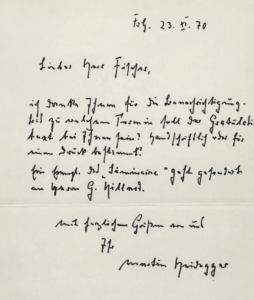 Frbg. 23. XI. 70
Lieber Herr Fischer,
ich danke Ihnen für die Benachrichtigung.
Bis zu welchem Termin soll das Gratulations
bei Ihnen sein? Handschriftlich oder für
einen Druck bestimmt?
Ein Exempl. des „Séminaire" geht gesondert
an Herrn G.
mit herzlichen Grüßen an und
Ihr
Martin Heidegger